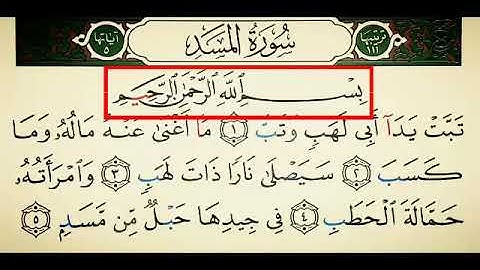 ترتيبها ١١١ سُورَةُ المَسَد آياتها ٥
بِسْمِ ٱللَّهِ ٱلرَّحْمَٰنِ ٱلرَّحِيمِ
تَبَّتْ يَدَآ أَبِى لَهَبٍ وَتَبَّ ١ مَآ أَغْنَىٰ عَنْهُ مَالُهُۥ وَمَا
كَسَبَ ٢ سَيَصْلَىٰ نَارًا ذَاتَ لَهَبٍ ٣ وَٱمْرَأَتُهُۥ
حَمَّالَةَ ٱلْحَطَبِ ٤ فِى جِيدِهَا حَبْلٌ مِّن مَّسَدٍۭ ٥